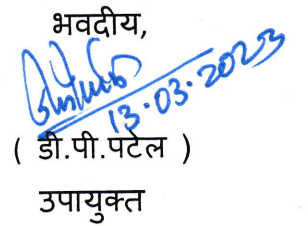 भवदीय,
13.03.2023
( डी.पी.पटेल )
उपायुक्त